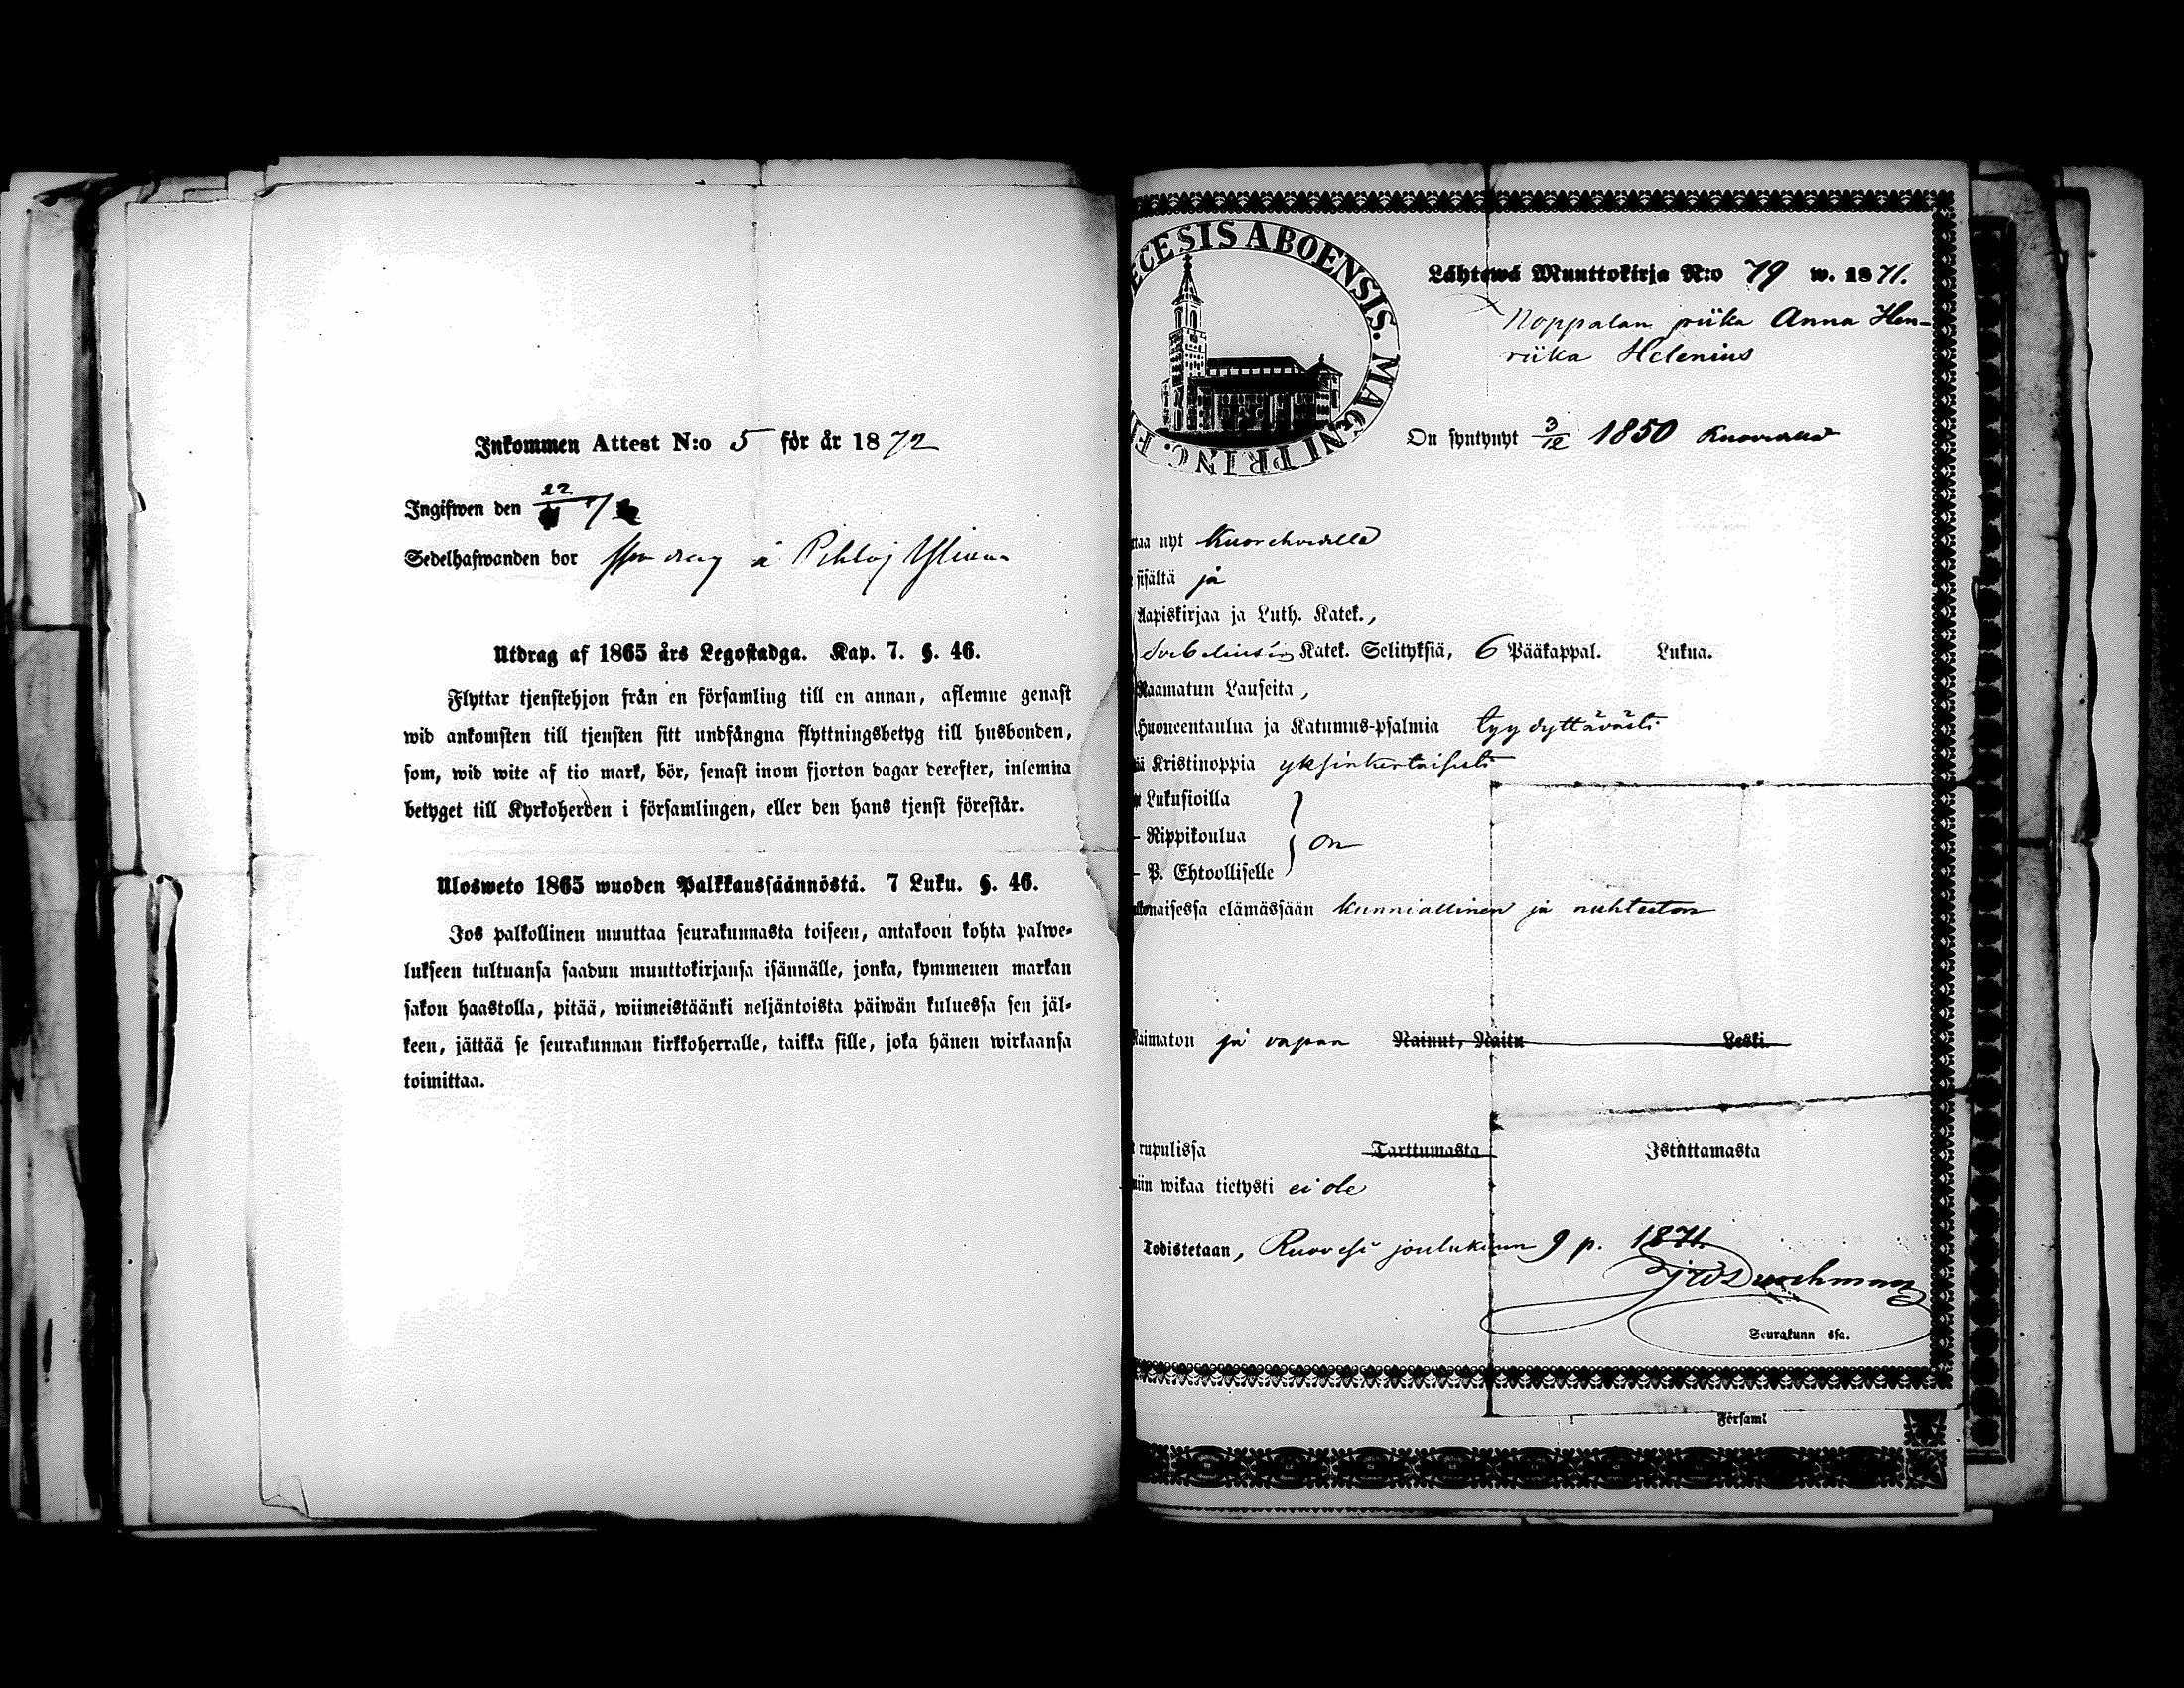 Inkommen Attest N:o 5 för år 1872
Ingifwen den 22/ 7
Sedelhafwanden bor å
Utdrag af 1865 års Legostadga. Kap. 7. §. 46.
Flyttar tjenstehjon från en församling till en annan, aflemne genast
wid ankomsten till tjensten sitt undfångna flyttningsbetyg till husbonden,
som, wid wite af tio mark, bör, senast inom fjorton dagar derefter, inlemna
betyget till Kyrkoherden i församlingen, eller den hans tjenst förestår.
Ulosweto 1865 wuoden Palkkaussäännöstä. 7 Luku. §. 46.
Jos palkollinen muuttaa seurakunnasta toiseen, antakoon kohta palwe-
lukseen tultuansa saadun muuttokirjansa isännälle, jonka, kymmenen markan
sakon haastolla, pitää, wiimeistäänki neljäntoista päiwän kuluessa sen jäl-
keen, jättää se seurakunnan kirkkoherralle, taikka sille, joka hänen wirkaansa
toimittaa.
ECESIS ABOENSIS. MAGNI PRINC. F
Lähtewä Muuttokirja N:o 79 w. 1871.
Noppalan piika Anna Hen-
riika Helenius
On syntynyt 3/12 1850
taa nyt Kuorehvedella
sisältä ja
Aapiskirjaa ja Luth. Katek.,
Katek. Selityksiä, 6 Pääkappal. Lukua.
Raamatun Lauseita,
Huoneentaulua ja Katumus-psalmia tyydyttävästi
ä Kristinoppia yksinkertaisesti
Lukusioilla
- Rippikoulua on
- P. Ehtoolliselle
naisessa elämässään kunniallinen ja nuhteeton
Naimaton ja vapaa Nainut, Naitu Leski.
rupulissa Tarttumasta Istuttamasta
iin wikaa tietysti ei ole
Todistetaan, Ruovesi joulukuun 9 p. 1871.
Seurakunn ssa.
Församl